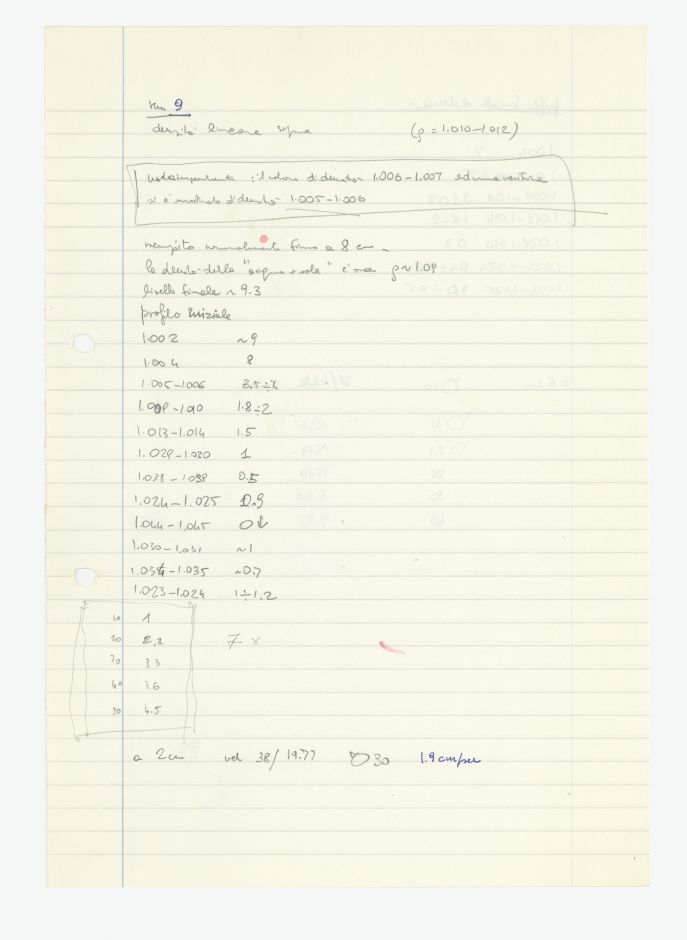 run 9
densità lineare sopra (ρ = 1.010-1.012)
nota importante : il valore di densità 1.006-1.007 ad una verifica
si è mostrato di densità 1.005-1.006
riempito normalmente fino a 8 cm -
la densità della "acqua + sale" è ora ρ ~ 1.09
livello finale ~ 9.3
profilo iniziale
1.002 ~9
1.004 8
1.005-1.006
1.8÷2
1.013-1.014 1.5
1
0.5
1.024-1.025 0.9
1.044-1.045 0↓
1.030-1.031 ~1
1.034-1.035 ~0.7
1.023-1.024 1÷1.2
10 1
20 2.2 7 x
30 3.3
40 3.6
50 4.5
a 2 cm vel 38/19.77 30 1.9 cm/sec